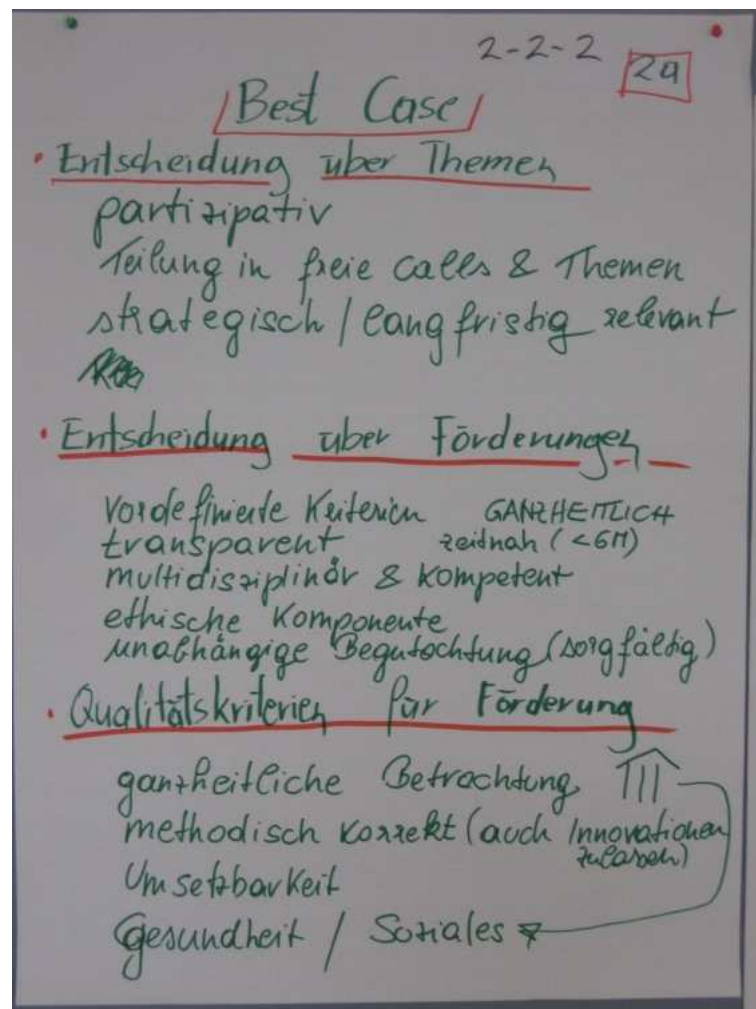 2-2-2 29
Best Case
• Entscheidung über Themen
partizipativ
Teilung in freie Calls & Themen
strategisch / langfristig relevant
• Entscheidung über Förderungen
Vordefinierte Kriterien GANZHEITLICH
transparent zeitnah (<6M)
multidisziplinär & kompetent
ethische Komponente
unabhängige Begutachtung (sorgfältig)
• Qualitätskriterien für Förderung
ganzheitliche Betrachtung
methodisch korrekt (auch Innovationen
zulassen)
Umsetzbarkeit
Gesundheit / Soziales